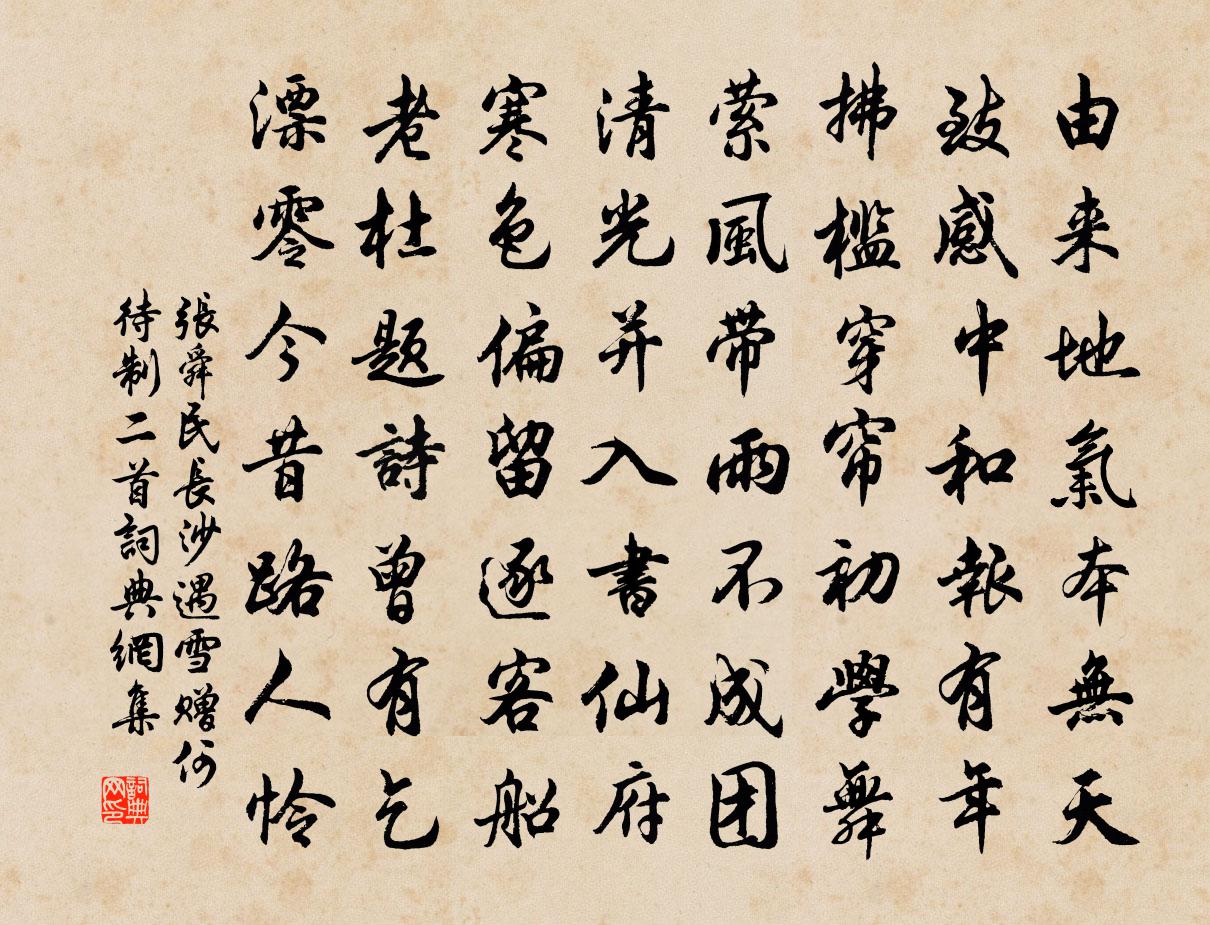 由来地氣本無天
致感中和報有年
拂檻穿帘初學舞
萦風帶雨不成团
清光并入書仙府
寒色偏留逐客船
老杜题詩曾有乞
漂零今昔路人怜
張舜民長沙遇雪赠何
待制二首詞典網集
詞典
网印